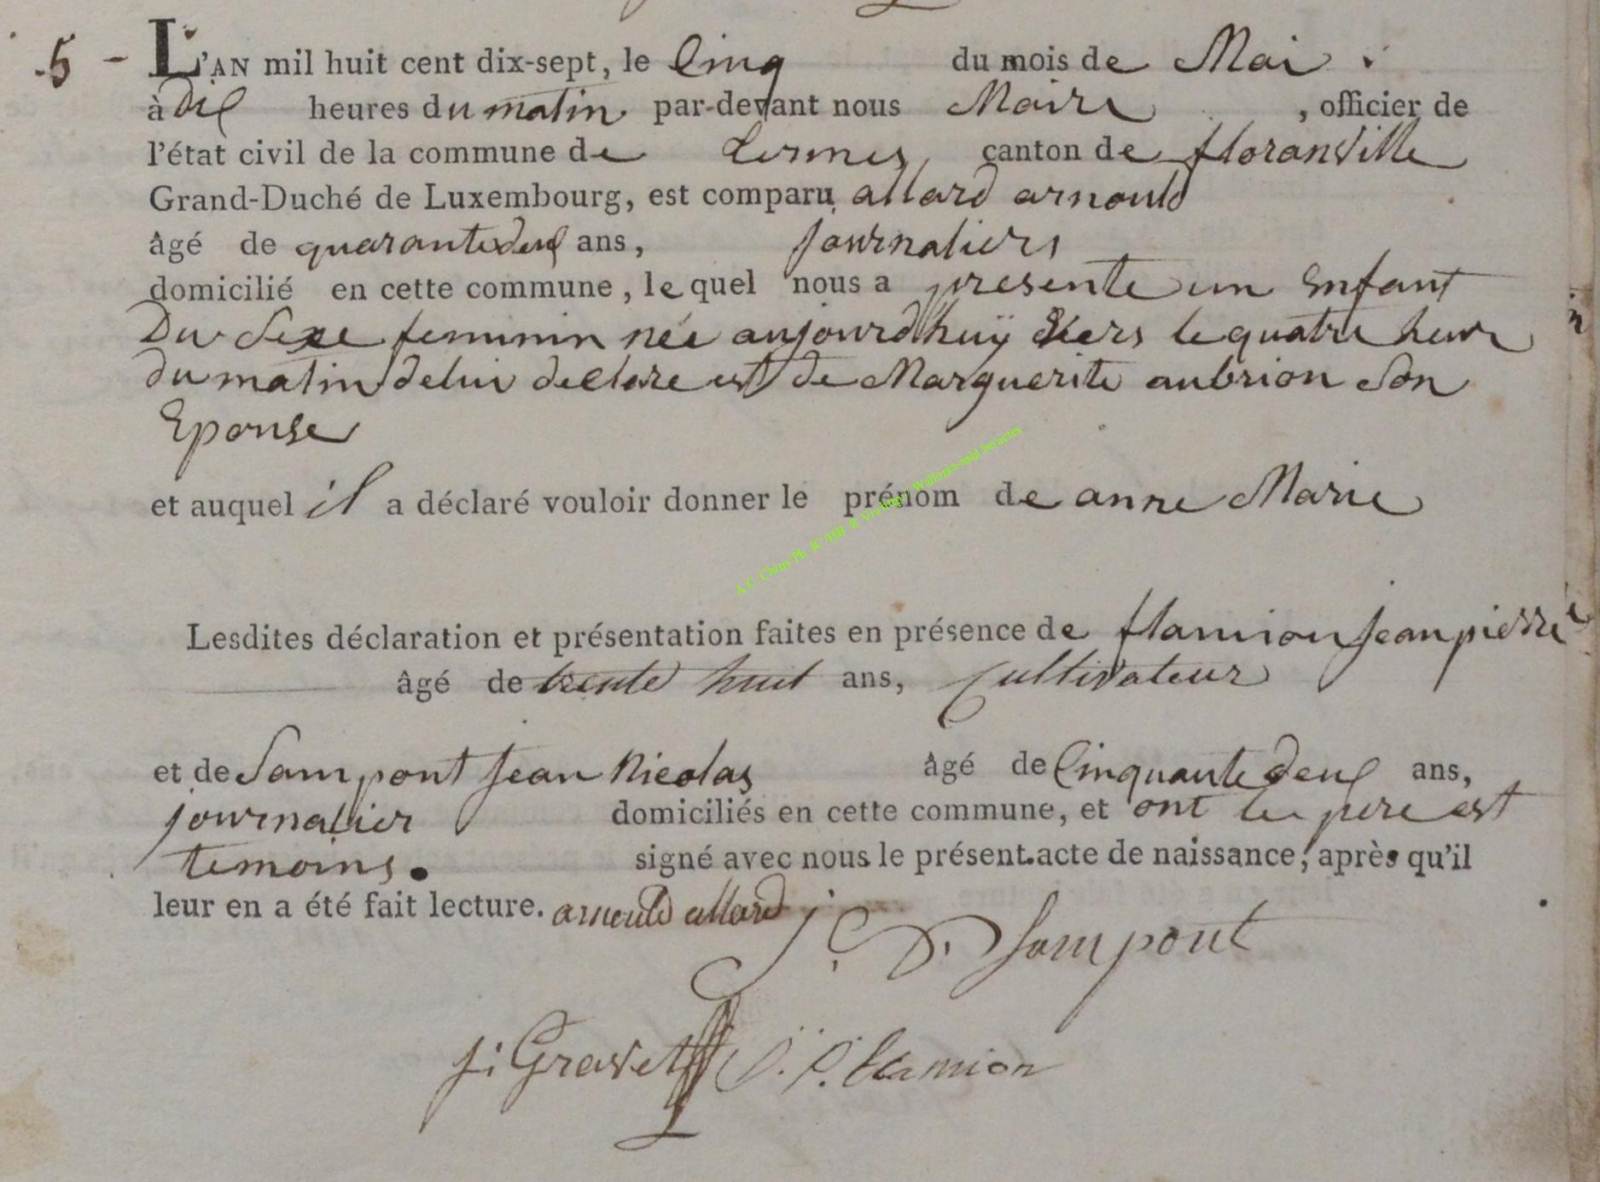 5 - L'AN mil huit cent dix-sept, le Cinq du mois de Mai
à dix heures du matin par-devant nous Maire, officier de
l'état civil de la commune de canton de floranville
Grand-Duché de Luxembourg, est comparu allard arnould
âgé de quarantedeux ans, journaliers
domicilié en cette commune, le quel nous a presente un Enfant
Du Sexe feminin née aujourdhuÿ Vers le quatre heur
du matin de lui declare est de Marguerite aubrion Son
Epouse
et auquel il a déclaré vouloir donner le prénom de anne Marie
Lesdites déclaration et présentation faites en présence de flamion jean pierre
âgé de trente huit ans, Cultivateur
et de Sampont jean Nicolas âgé de Cinquante deux ans,
journalier domiciliés en cette commune, et ont le pere est
temoins. signé avec nous le présent acte de naissance, après qu'il
leur en a été fait lecture. arnould allard
Sampont
j: Gravet J. P. flamion